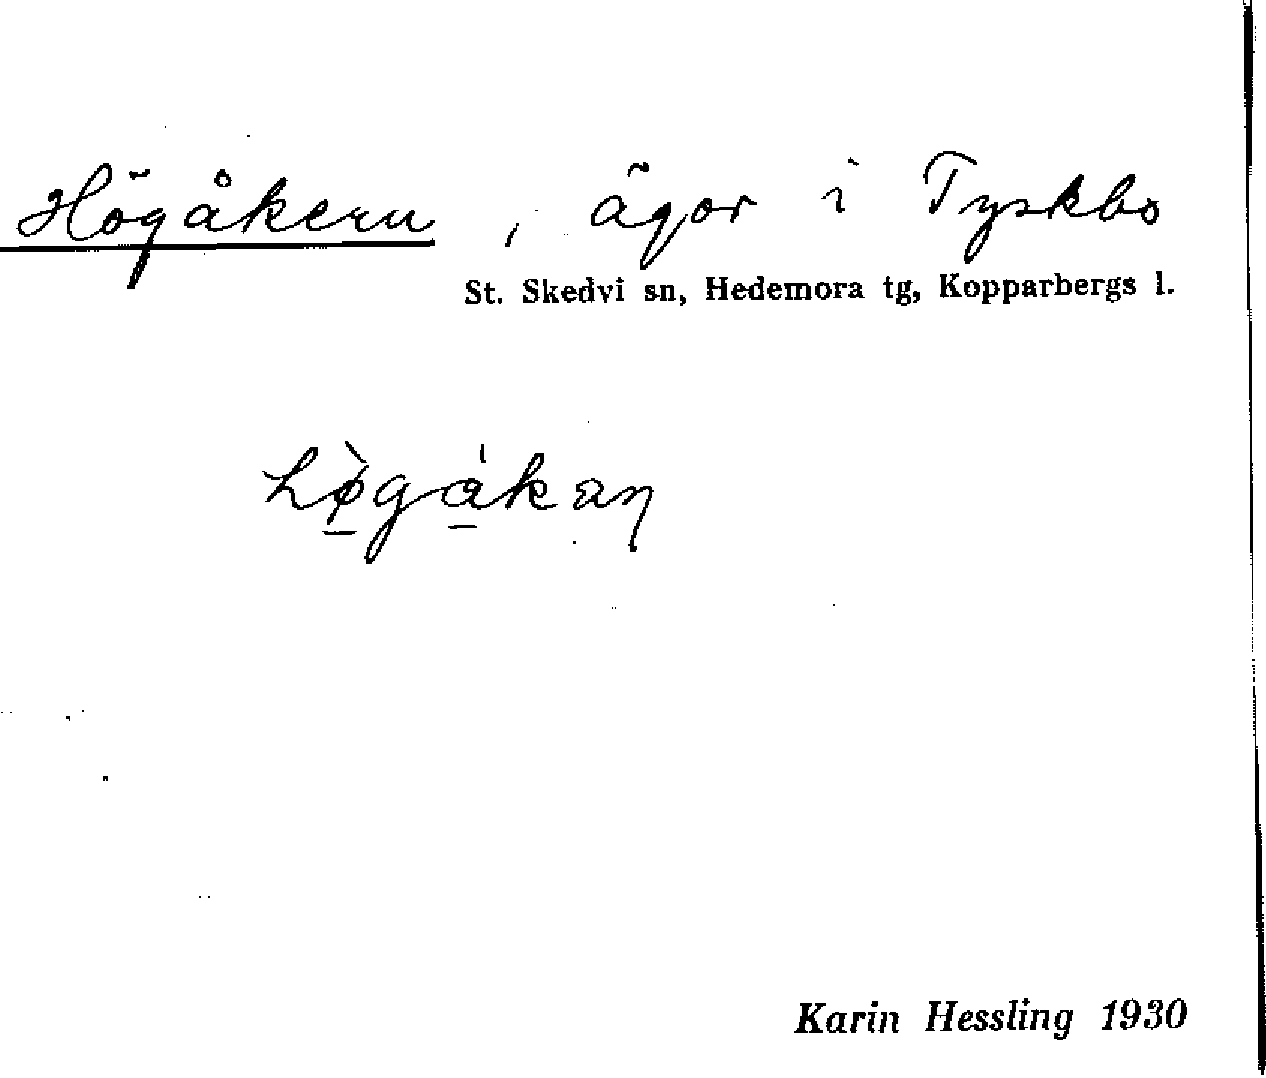 Högåkern, ägor i Tyskbo
St. Skedvi sn, Hedemora tg, Kopparbergs l.
hø̠̀ga̠̍kaꞃ
Karin Hessling 1930